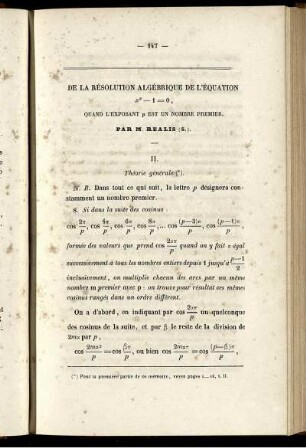 — 147 —
DE LA RÉSOLUTION ALGÉBRIQUE DE L'ÉQUATION
xᵖ — 1 = 0,
QUAND L'EXPOSANT p EST UN NOMBRE PREMIER.
PAR M. REALIS (S.).
II.
Théorie générale (*).
N. B. Dans tout ce qui suit, la lettre p désignera con-
stamment un nombre premier.
8. Si dans la suite des cosinus :
cos 2π/p, cos 4π/p, cos 6π/p, cos 8π/p, ... cos (p—3)π/p, cos (p—1)π/p,
formée des valeurs que prend cos 2xπ/p quand on y fait x égal
successivement à tous les nombres entiers depuis 1 jusqu'à p—1/2
inclusivement, on multiplie chacun des arcs par un même
nombre m premier avec p : on trouve pour résultat ces mêmes
cosinus rangés dans un ordre différent.
On a d'abord, en indiquant par cos 2απ/p un quelconque
des cosinus de la suite, et par β le reste de la division de
2mα par p,
cos 2mαπ/p = cos βπ/p, ou bien cos 2mαπ/p = cos (p—β)π/p,
(*) Pour la première partie de ce mémoire, voyez pages 1... et, t. II.